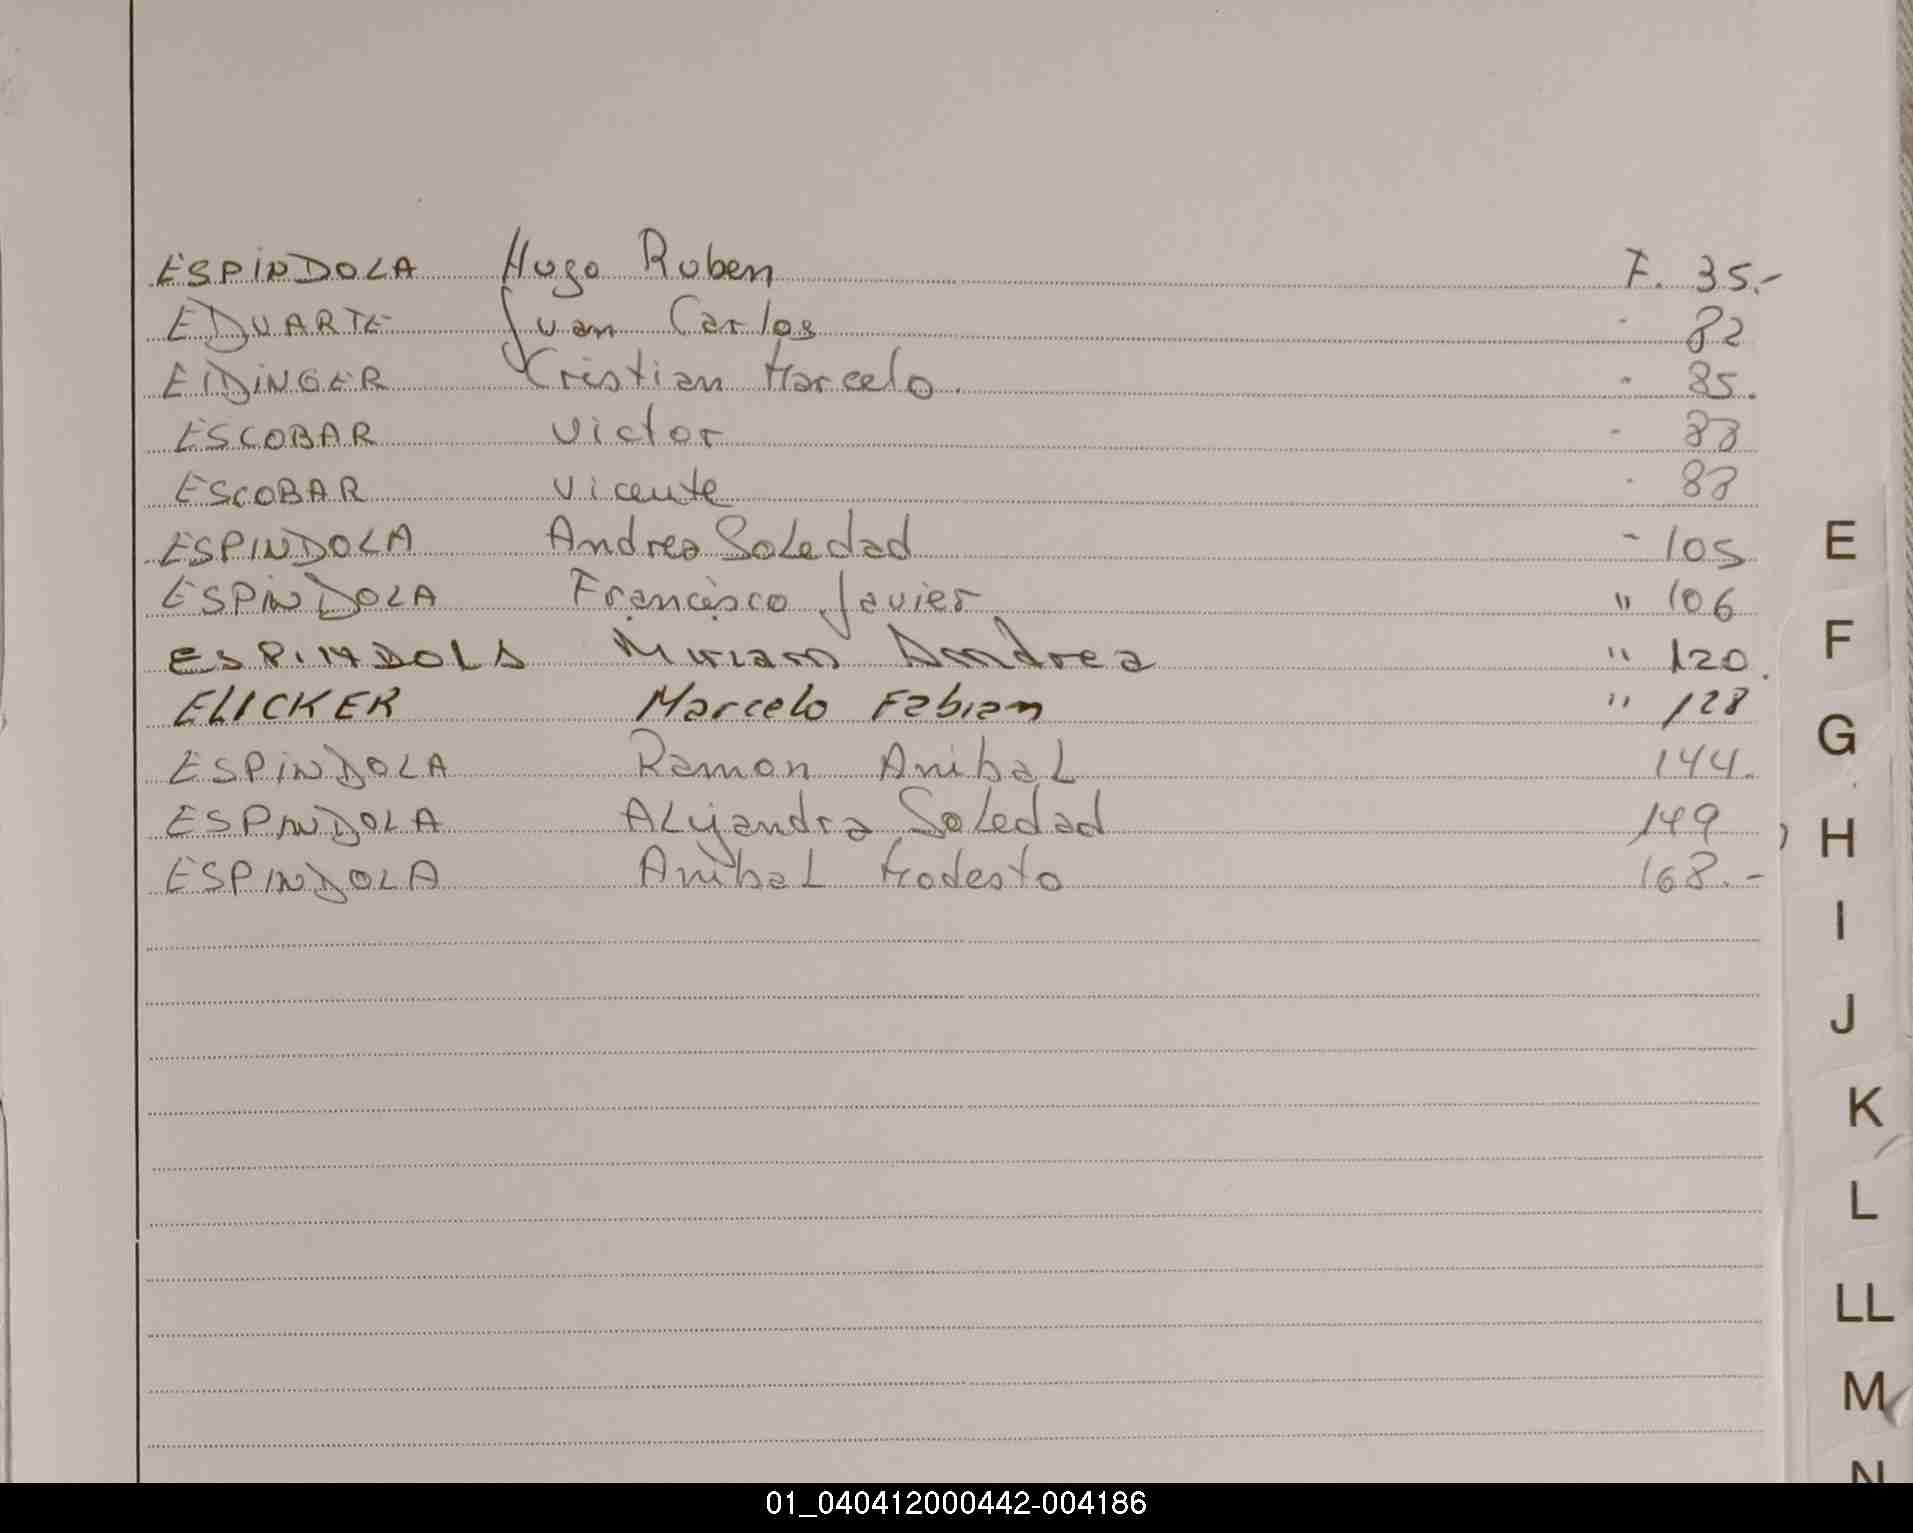 ESPINDOLA Hugo Ruben F. 35.-
EDUARTE Juan Carlos - 82
EIDINGER Cristian Marcelo. - 85.
ESCOBAR Victor - 88
ESCOBAR Vicente - 88
ESPINDOLA Andrea Soledad - 105
ESPINDOLA Francisco Javier " 106
ESPINDOLA Miriam Andrea " 120.
ELICKER Marcelo Fabian " 128
ESPINDOLA Ramon Anibal 144.
ESPINDOLA Alejandra Soledad 149
ESPINDOLA Anibal Modesto 168.-
E
F
G
H
I
J
K
L
LL
M
N
01_040412000442-004186